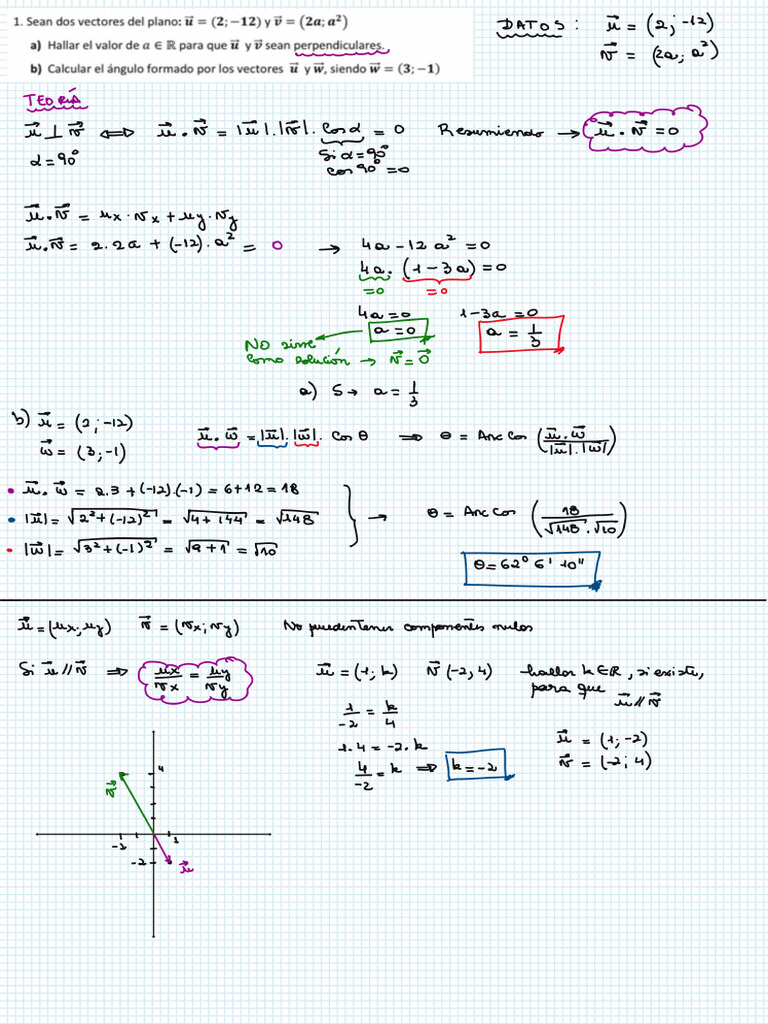 1. Sean dos vectores del plano: u⃗ = (2; −12) y v⃗ = (2a; a²)
a) Hallar el valor de a ∈ ℝ para que u⃗ y v⃗ sean perpendiculares.
b) Calcular el ángulo formado por los vectores u⃗ y w⃗, siendo w⃗ = (3; −1)
DATOS: u⃗ = (2; -12)
v⃗ = (2a; a²)
TEORÍA
u⃗ ⊥ v⃗ ⟺ u⃗ . v⃗ = |u⃗|.|v⃗|. Cos α = 0 Resumiendo → u⃗ . v⃗ = 0
α = 90° Si α = 90°
cos 90° = 0
u⃗ . v⃗ = ux . vx + uy . vy
u⃗ . v⃗ = 2.2a + (-12). a² = 0 → 4a - 12a² = 0
4a. (1 - 3a) = 0
=0 =0
4a = 0 1 - 3a = 0
a = 0 a = 1/3
NO sirve
como solución → v⃗ = 0⃗
a) S → a = 1/3
b) u⃗ = (2; -12)
w⃗ = (3; -1)
u⃗ . w⃗ = |u⃗|. |w⃗|. Cos θ ⟹ θ = Arc Cos (u⃗ . w⃗ / |u⃗|.|w⃗|)
• u⃗ . w⃗ = 2.3 + (-12).(-1) = 6 + 12 = 18
• |u⃗| = √(2² + (-12)²) = √(4 + 144) = √148 } → θ = Arc Cos (18 / √148 . √10)
• |w⃗| = √(3² + (-1)²) = √(9 + 1) = √10
θ = 62° 6' 10''
u⃗ = (ux; uy) v⃗ = (vx; vy) No pueden tener componentes nulos
Si u⃗ // v⃗ ⟹ ux/vx = uy/vy
u⃗ = (1; k) v⃗ (-2, 4) hallar k ∈ ℝ, si existe,
para que u⃗ // v⃗
1/-2 = k/4
1.4 = -2.k
4/-2 = k ⟹ k = -2
u⃗ = (1; -2)
v⃗ = (-2; 4)
4
v⃗
-2
1
-2
u⃗